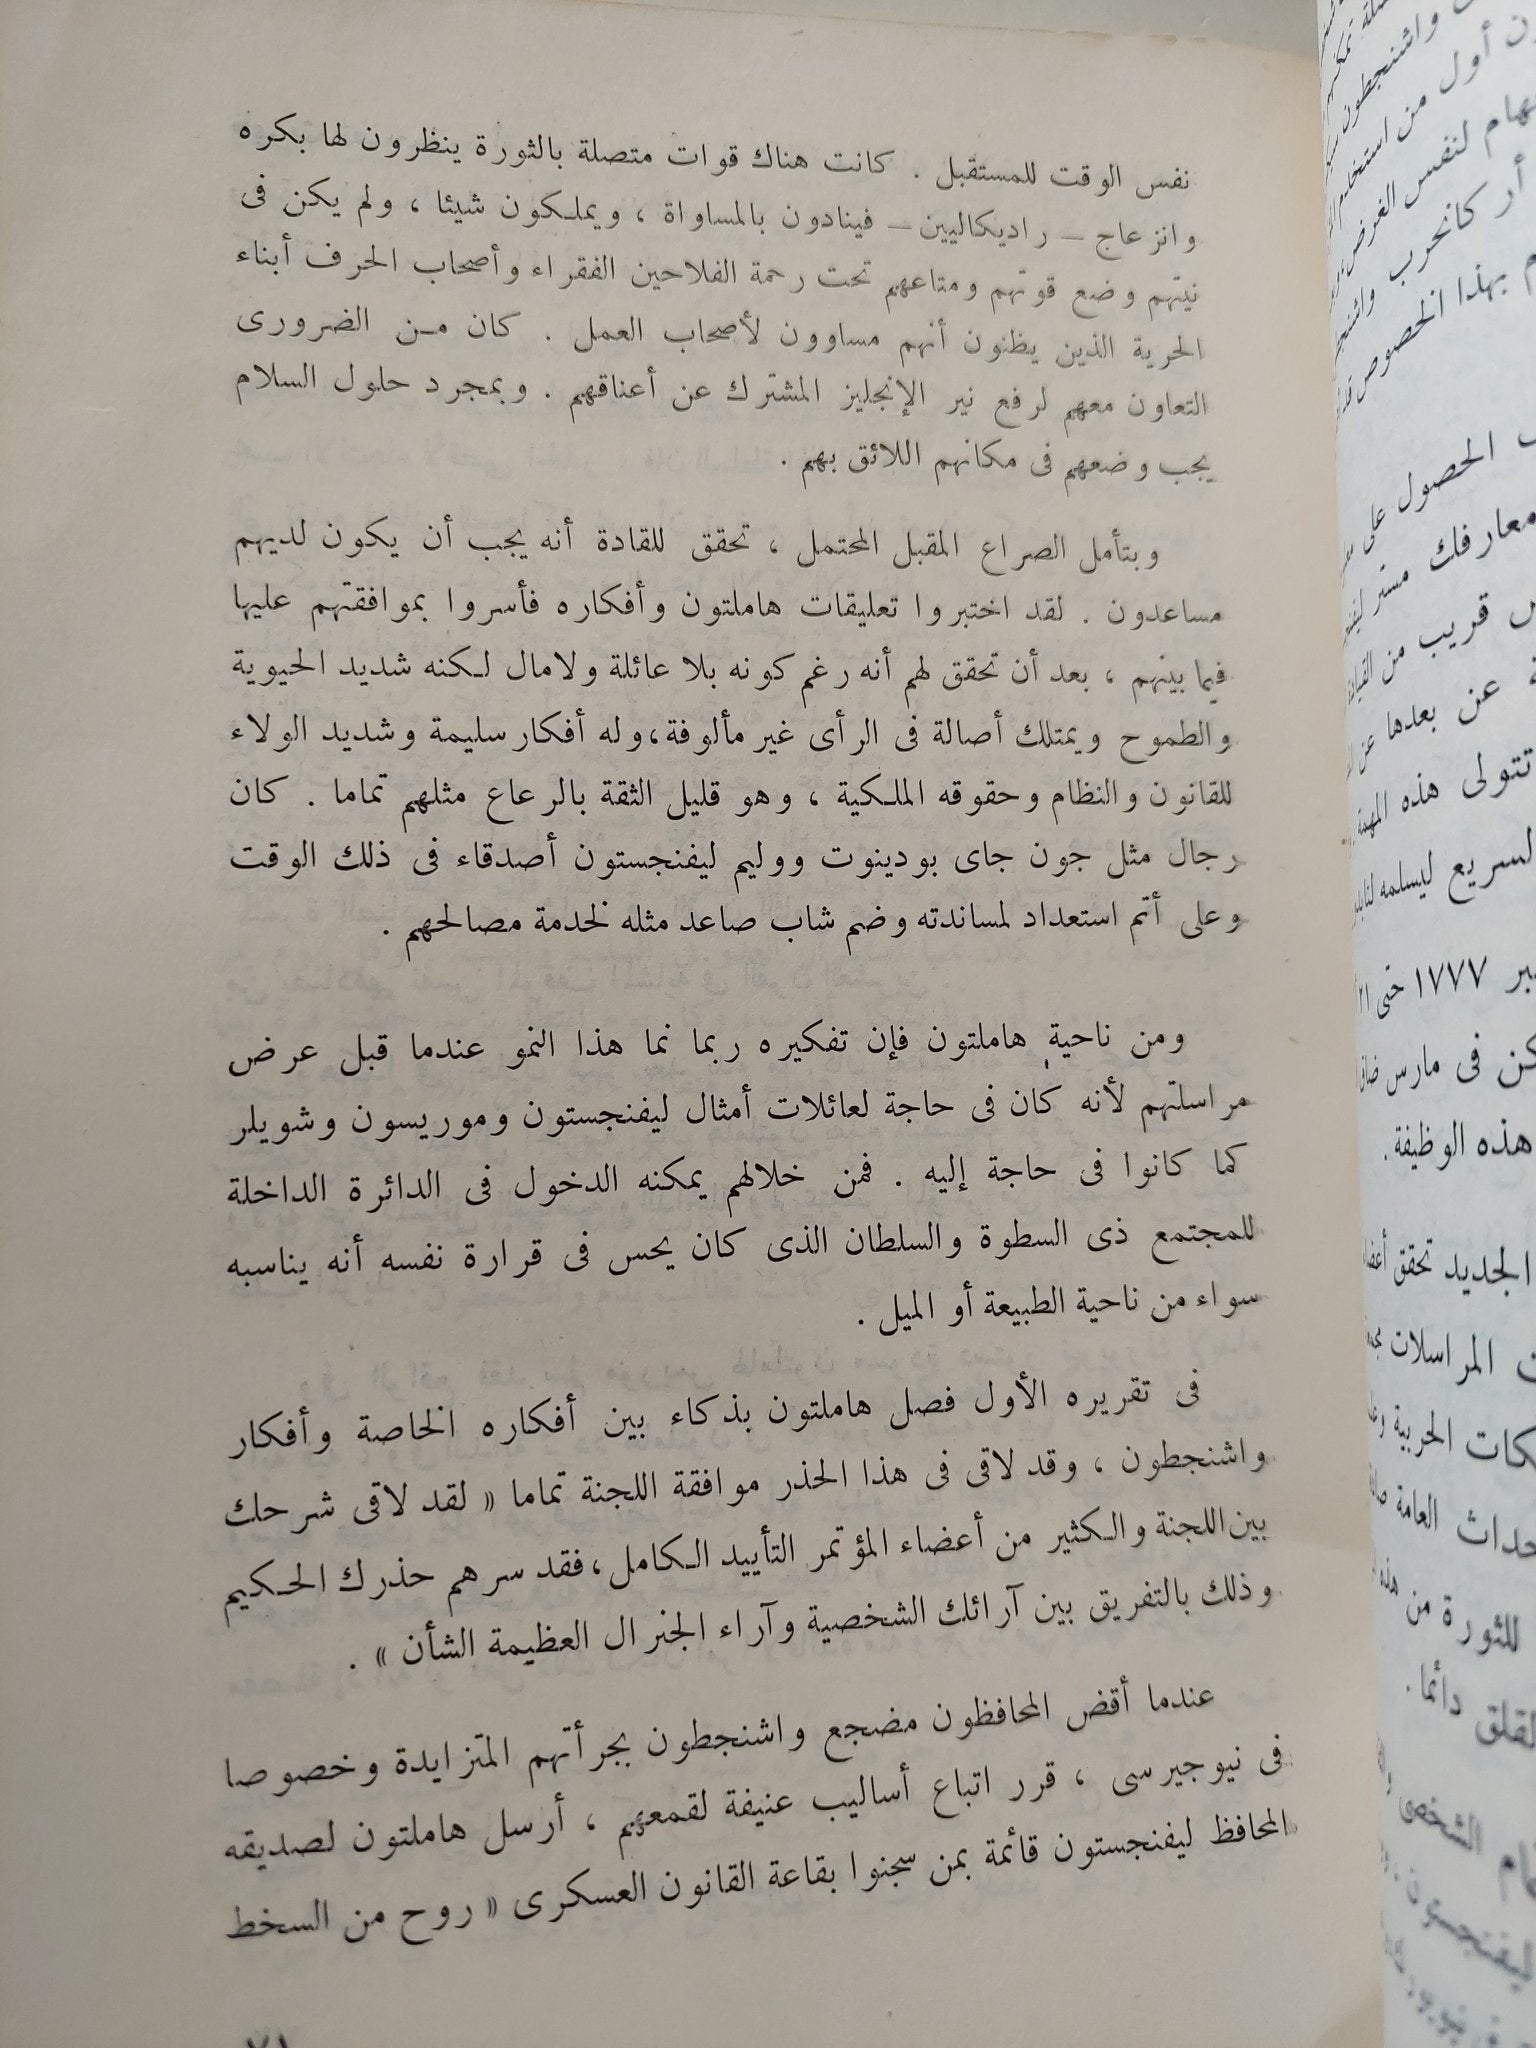 نفس الوقت للمستقبل . كانت هناك قوات متصلة بالثورة ينظرون لها بكره
وانزعاج – راديكاليين – فينادون بالمساواة ، ويملكون شيئا ، ولم يكن فى
نيتهم وضع قوتهم ومتاعهم تحت رحمة الفلاحين الفقراء وأصحاب الحرف أبناء
الحرية الذين يظنون أنهم مساوون لأصحاب العمل . كان من الضرورى
التعاون معهم لرفع نير الإنجليز المشترك عن أعناقهم . وبمجرد حلول السلام
يجب وضعهم فى مكانهم اللائق بهم .
وبتأمل الصراع المقبل المحتمل ، تحقق للقادة أنه يجب أن يكون لديهم
مساعدون . لقد اختبروا تعليقات هاملتون وأفكاره فأسروا بموافقتهم عليها
فيما بينهم ، بعد أن تحقق لهم أنه رغم كونه بلا عائلة ولامال لكنه شديد الحيوية
والطموح ويمتلك أصالة فى الرأى غير مألوفة، وله أفكار سليمة وشديد الولاء
للقانون والنظام وحقوقه الملكية ، وهو قليل الثقة بالرعاع مثلهم تماما . كان
رجال مثل جون جاى بودينوت ووليم ليفنجستون أصدقاء فى ذلك الوقت
وعلى أتم استعداد لمساندته وضم شاب صاعد مثله لخدمة مصالحهم .
ومن ناحية هاملتون فإن تفكيره ربما نما هذا النمو عندما قبل عرض
مراسلتهم لأنه كان فى حاجة لعائلات أمثال ليفنجستون وموريسون وشويلر
كما كانوا فى حاجة إليه . فمن خلالهم يمكنه الدخول فى الدائرة الداخلة
للمجتمع ذى السطوة والسلطان الذى كان يحس فى قرارة نفسه أنه يناسبه
سواء من ناحية الطبيعة أو الميل .
فى تقريره الأول فصل هاملتون بذكاء بين أفكاره الخاصة وأفكار
واشنجطون ، وقد لاقى فى هذا الحذر موافقة اللجنة تماما « لقد لاقى شرحك
بين اللجنة والكثير من أعضاء المؤتمر التأييد الكامل، فقد سرهم حذرك الحكيم
وذلك بالتفريق بين آرائك الشخصية وآراء الجنرال العظيمة الشأن » .
عندما أقض المحافظون مضجع واشنجطون بجرأتهم المتزايدة وخصوصا
فى نيوجيرسى ، قرر اتباع أساليب عنيفة لقمعهم ، أرسل هاملتون لصديقه
المحافظ ليفنجستون قائمة بمن سجنوا بقاعة القانون العسكرى « روح من السخط
واشنجطون
أول من استخدم
لنفس الغرض
كانحرب
بهذا الخصوص
الحصول على
معارفك مستر
قريب من
عن بعدها عن
تتولى هذه المهمة
السريع ليسلمه
١٧٧٧ حتى
فى مارس
هذه الوظيفة .
الجديد تحقق
المراسلات
الحربية
العامة
للثورة من هذه
دائما .